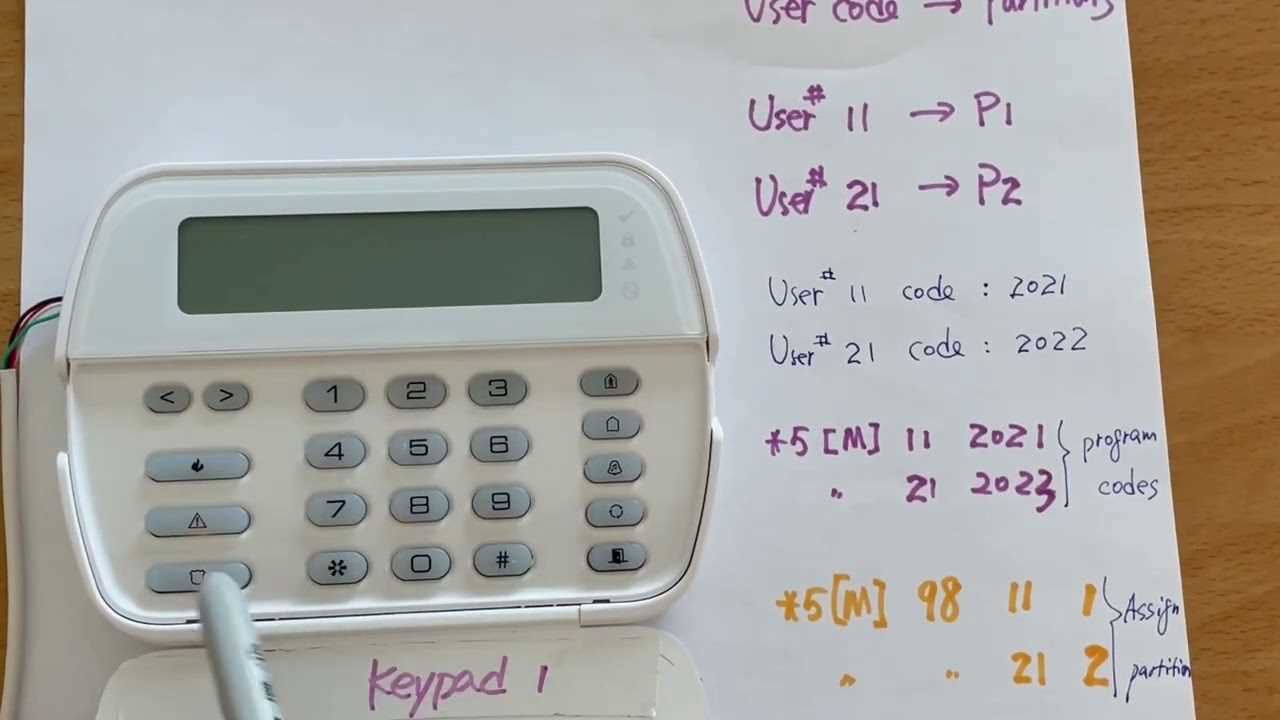 User code → Partitions
User# 11 → P1
User# 21 → P2
User# 11 code : 2021
User# 21 code : 2022
*5 [M] 11 2021 } program
" 21 2023 } codes
*5 [M] 98 11 1 } Assign
" " 21 2 } partition
< > 1 2 3
4 5 6
7 8 9
* 0 #
Keypad 1